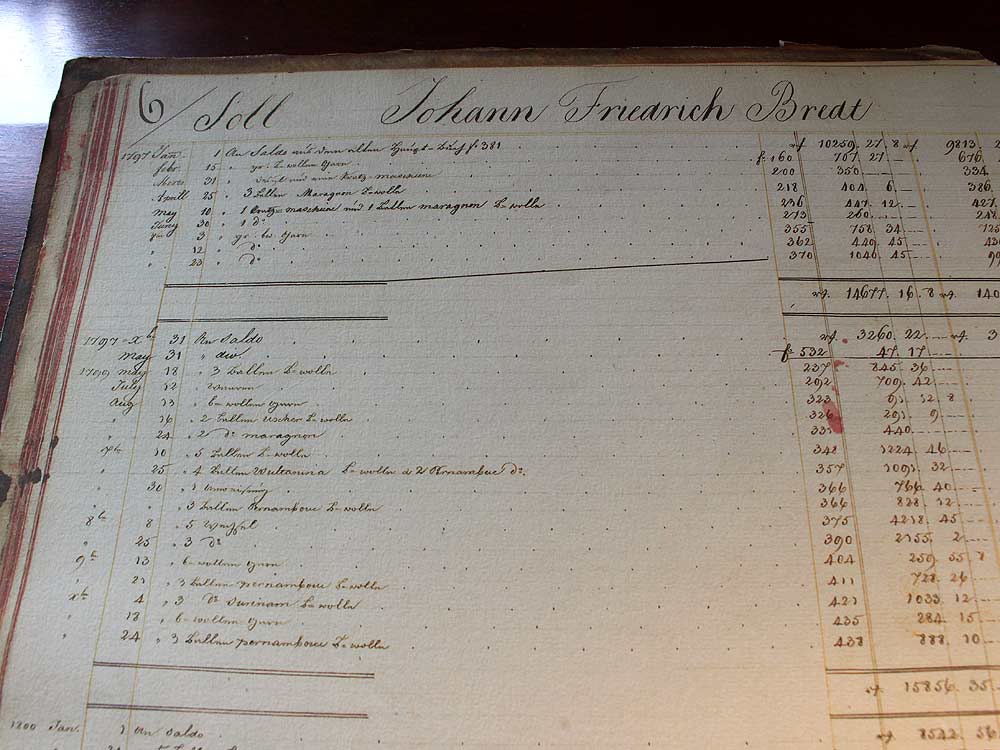 6/ Soll Johann Friedrich Bredt
1797 Jan. 1 An Saldo aus dem alten Haupt-Buch fo 381 rf 10259. 27. 8 rf 9813. 2
febr. 15 " gr. b-wollen Garn f. 160 757 27 676.
Merz 31 " 200 350 334.
Aprill 25 " 3 Ballen Maragnon b-wolle 218 404 6. 386.
may 10 " 1 Kratz-maschiene und 1 Ballen maragnon b-wolle 236 447. 12. 427.
Juny 30 " 1 do 273 260. 248
3 " gr. bw Garn 355 758 34 725
" 12 " do 362 440. 45 430
" 23 " do 370 1040. 45 99
rf. 14677. 16. 8 rf. 140
1797 xbr 31 An Saldo rf. 3260. 22. rf. 3
may 31 " div. fo 532 47. 17
1799 may 18 " 3 Ballen b-wolle 237 845. 36
July 12 " 292 709. 42
Aug 13 " b-wollen Garn 323 91. 12. 8
" 16 " 2 Ballen b-wolle 326 291. 9
" 24 " 2 do maragnon 331 440.
10 " 5 Ballen b-wolle 348 1224. 46
" 25 " 4 Ballen b-wolle & 2 Pernambuc do. 357 1091. 32
" 30 " 1 Anweisung 366 766. 40
" " " 3 Ballen Pernambouc b-wolle 366 828. 12
8br 8 " 5 Wechsel 375 4218. 45
" 25 " 3 do 390 2155. 2
9br 13 " b-wollen Garn 404 259. 55. 8
" 21 " 3 Ballen pernambouc b-wolle 411 728. 26
xbr 4 " 3 do Surinam b-wolle 421 1033. 12
" 18 " b-wollen Garn 435 284. 15
" 24 " 3 Ballen pernambouc b-wolle 438 888. 10
rf. 15856. 35
1800 Jan. 1 An Saldo rf. 8522. 56